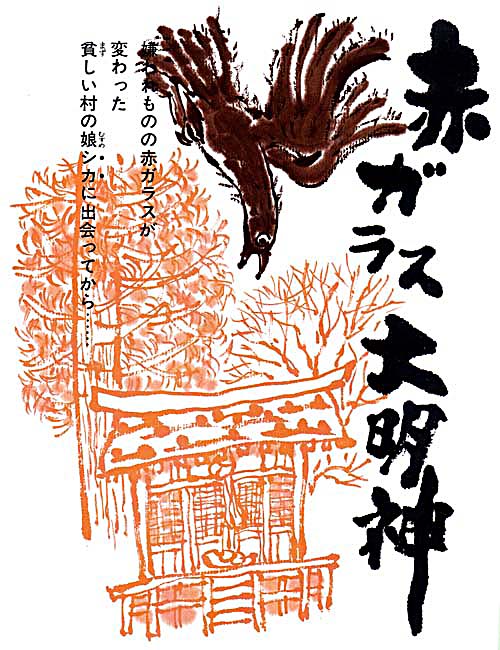 赤ガラス大明神
嫌われものの赤ガラスが
変わった
貧しい村の娘シカに出会ってから……